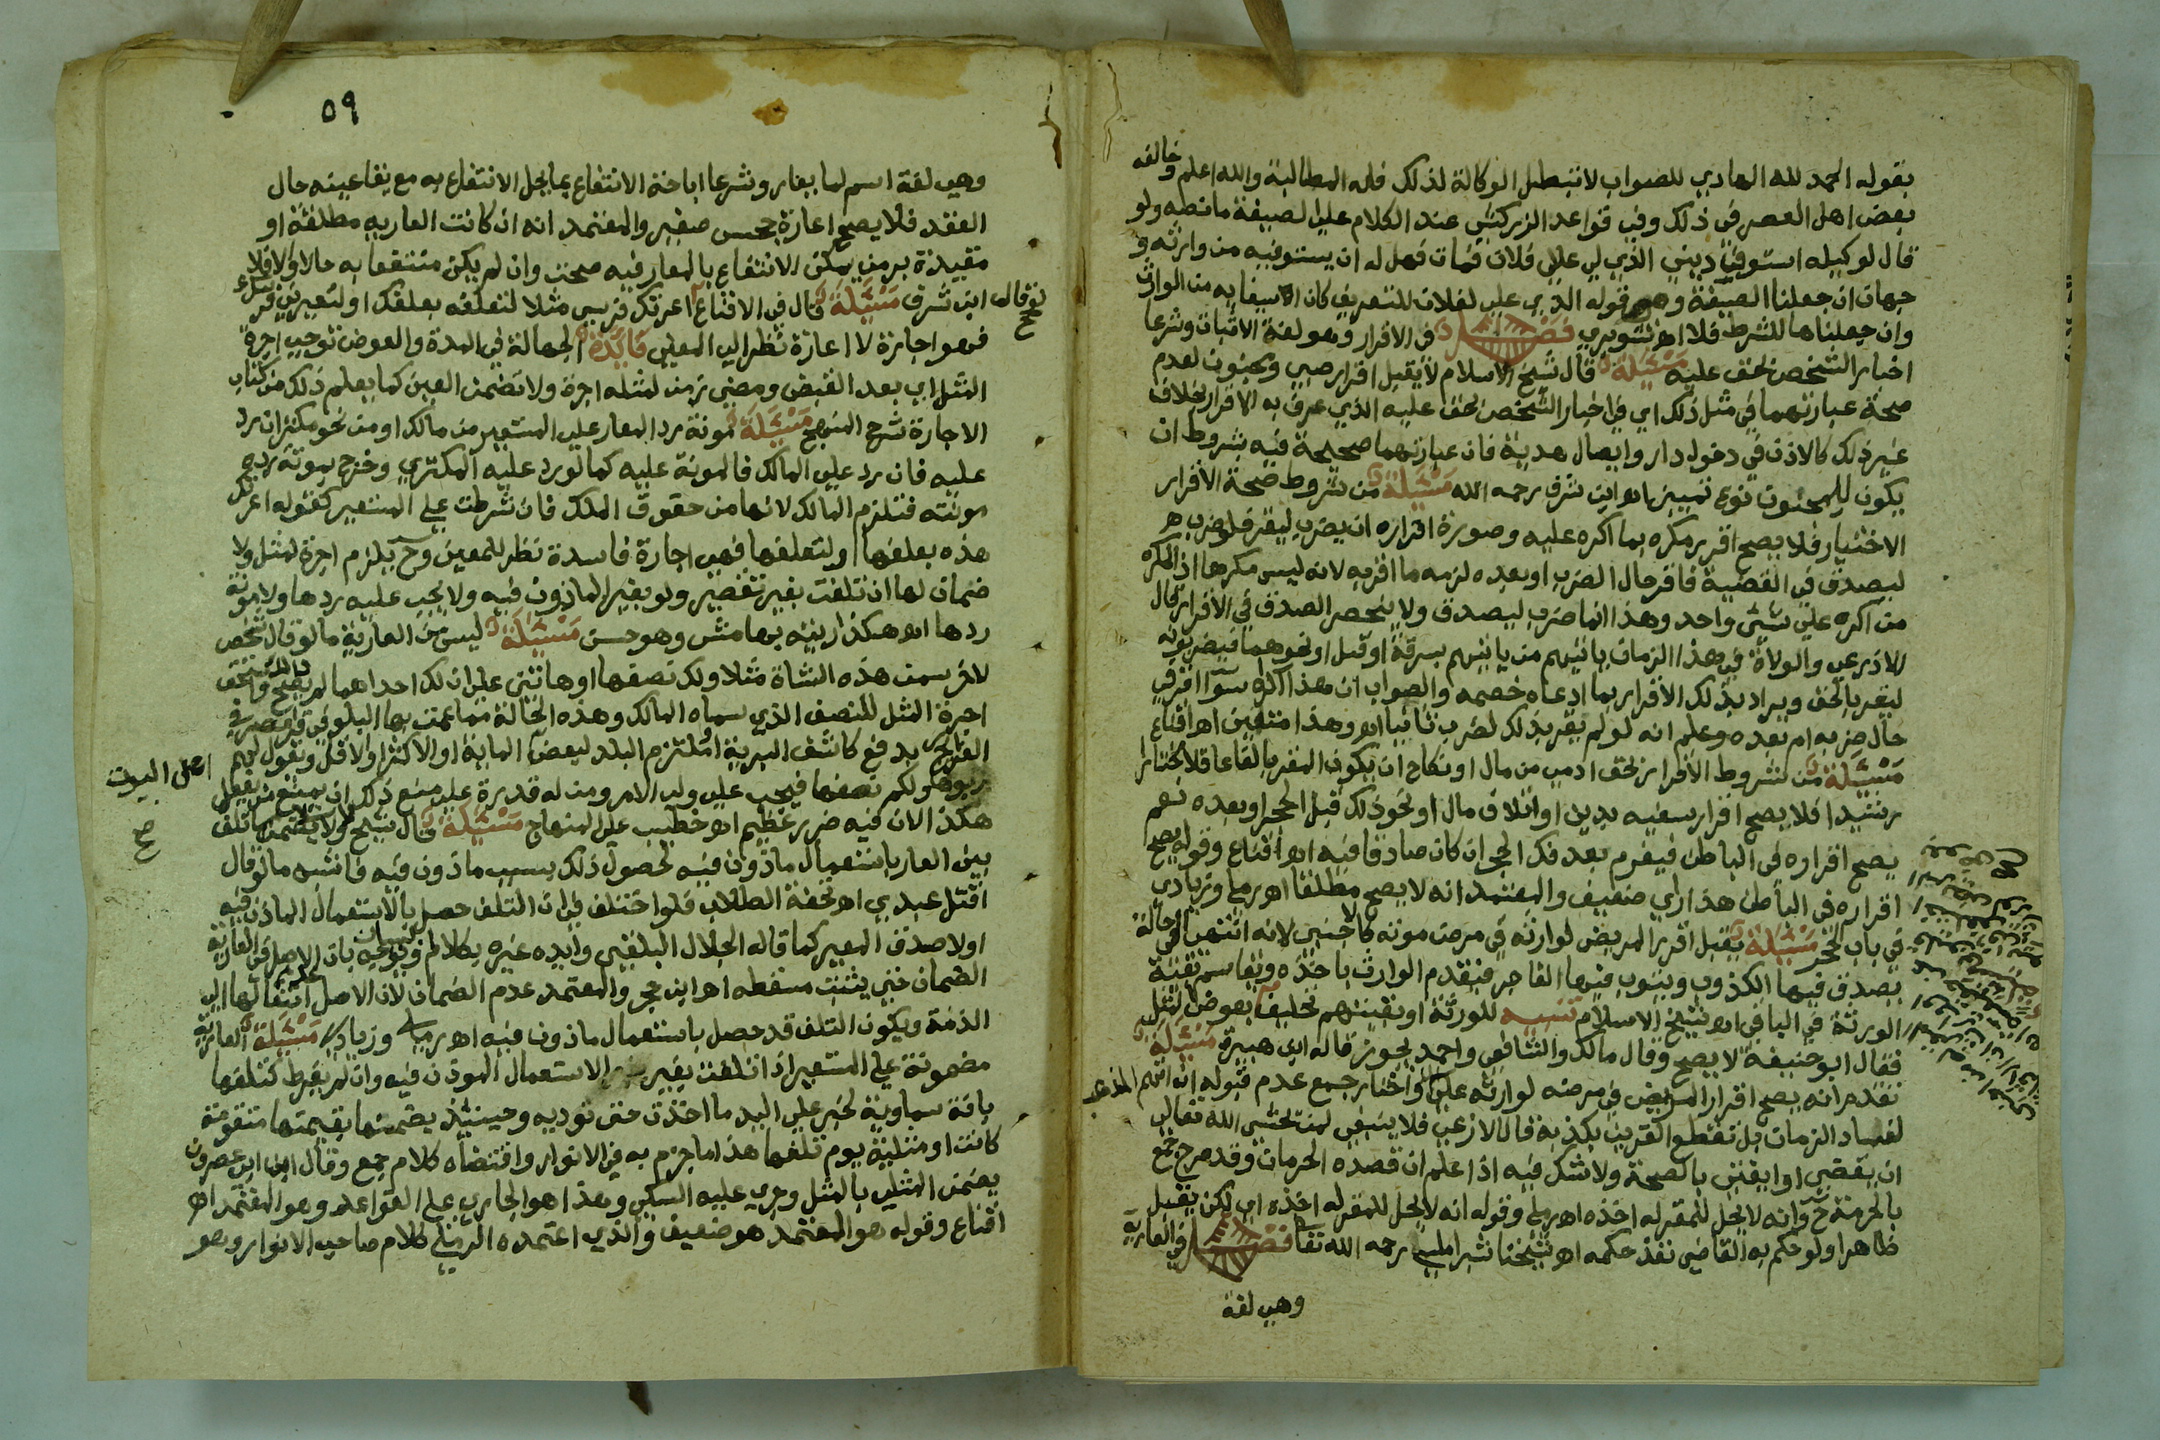 بقوله الحمد لله الهادي للصواب لا تبطل الوكالة لذلك فله المطالبة والله اعلم وخالفه
بعض اهل العصر في ذلك وفي قواعد الزركشي عند الكلام على الصيغة ما نصه ولو
قال لوكيله استوفي ديني الذي لي على فلان فمات فهل له ان يستوفيه من وارثه و
جهات ان جعلنا الصيغة وهو قوله الذي على لفلان للتعريف كان الاستيفا به من الوارث
وان جعلناها للشرط فلا اهـ شوبري فصل في الاقرار وهو لغة الاثبات وشرعا
اخبار الشخص بحق عليه مسئلة قال شيخ الاسلام لا يقبل اقرار صبي ومجنون لعدم
صحة عبارتهما في مثل ذلك اي في اخبار الشخص بحق عليه الذي عرف به الاقرار بخلاف
غير ذلك كالاذن في دخول دار وايصال هدية فان عبارتهما صحيحة فيه بشروط ان
يكون للمجنون نوع تمييز اهـ ابن شرف رحمه الله مسئلة من شروط صحة الاقرار
الاختيار فلا يصح اقرار مكره بما اكره عليه وصورة اقراره ان يضرب ليقر فلو ضرب
ليصدق في القضية فاقر حال الضرب او بعده لزمه ما اقر به لانه ليس مكرها اذ المكره
من اكره على شئ واحد وهذا انما ضرب ليصدق ولا ينحصر الصدق في الاقرار قال
الاذرعي والولاة في هذا الزمان ياتيهم من ياتيهم بسرقة او قتل او نحوهما فيضربونه
ليقر بالحق ويراد بذلك الاقرار بما ادعاه خصمه والصواب ان هذا اكراه سوآ اقر في
حال ضربه ام بعده وعلم انه لو لم يقر بذلك لضرب ثانيا اهـ وهذا متعين اهـ اقناع
مسئلة من شروط الاقرار بحق ادمي من مال او نكاح ان يكون المقر بالغا عاقلا مختارا
رشيدا فلا يصح اقرار سفيه بدين او اتلاف مال او نحو ذلك قبل الحجر او بعده نعم
يصح اقراره في الباطن فيغرم بعد فك الحجر ان كان صادقا فيه اهـ اقناع وقوله يصح
اقراره في الباطن هذا راي ضعيف والمعتمد انه لا يصح مطلقا اهـ رملي وزيادي
في باب الحجر مسئلة يقبل اقرار المريض لوارثه في مرض موته كالاجنبي لانه انتهى الى حالة
يصدق فيها الكذوب ويتوب فيها الفاجر فيقدم الوارث باخذه ويقاسم بقية
الورثة في الباقي اهـ شيخ الاسلام تنبيه للورثة او بقيتهم تحليف بعوض المثل
فقال ابو حنيفة لا يصح وقال مالك والشافعي واحمد يجوز قاله ابن هبيرة مسئلة
تقدم انه يصح اقرار المريض في مرضه لوارثه على واختار جمع عدم قبوله ان اتهم المذهب
لفساد الزمان بل تقطع القرين بكذبه قال الاذرعي فلا ينبغي لمن يخشى الله تعالى
ان يقضي او يفتي بالصحة ولا شك فيه اذا علم ان قصده الحرمان وقد صرح جمع
بالحرمة ح وانه لا يحل للمقر له اخذه اهـ رملي وقوله انه لا يحل للمقر له اخذه اي لكن يقبل
ظاهرا ولو حكم به القاضي نفذ حكمه اهـ شيخنا شبراملسي رحمه الله تعا فصل في العارية
وهي لغة
٥٩
وهي لغة اسم لما يعار وشرعا اباحة الانتفاع بما يحل الانتفاع به مع بقا عينه حال
العقد فلا يصح اعارة جحش صغير والمعتمد انه ان كانت العاريه مطلقة او
مقيدة بزمن يمكن الانتفاع بالمعار فيه صحت وان لم يكن منتفعا به حالا والا فلا
نو قاله ابن شرف مسئلة قال في الاقناع اعرتك فرسي مثلا لتعلفه بعلفك او لتعيرني فرسك
فهو اجارة لا اعارة نظرا الى المعنى فائدة الجهالة في المدة والعوض توجب اجرة
المثل اي بعد القبض ومضي زمن لمثله اجرة ولا تضمن العين كما يعلم ذلك من كتاب
الاجارة شرح المنهج مسئلة مونة رد المعار على المستعير من مالك او من نحو مكتر ان رد
عليه فان رد على المالك فالمونة عليه كما لو رد عليه المكتري وخرج بمونة رده
مونته فتلزم المالك لانها من حقوق الملك فان شرطت على المستعير كقوله اعرتك
هذه بعلفها او لتعلفها فهي اجارة فاسدة نظر للمعين وح يلزم اجرة لمثل ولا
ضمان لها ان تلفت بغير تقصير ولو بغير الماذون فيه ولا يجب عليه ردها ولا مونة
ردها اهـ هكذا رايته بهامش وهو حسن مسئلة ليس من العارية ما لو قال شخص
لاخر سمن هذه الشاة مثلا ولك نصفها او هاتين على ان لك احداهما لم يصح والمستحق
اجرة المثل للنصف الذي سماه المالك وهذه الحالة مما عمت بها البلوى في قرا مصر في
الفراريج يدفع كاشف البرية او ملتزم البلد لبعض الماية او الاكثر او الاقل ويقول لهم
ربوهم ولكم نصفها فيجب على ولي الامر ومن له قدرة على منع ذلك ان يمنع من يفعل
اهل البيوت
صح
هكذا لان فيه ضرر عظيم اهـ خطيب على المنهاج مسئلة قال شيخ ولا يضمن ما تلف
بين المعار باستعمال ماذون فيه لحصول ذلك بسبب ماذون فيه فاشبه ما لو قال
اقتل عبدي اهـ تحفة الطلاب فلو اختلف في ان التلف حصل بالاستعمال الماذون فيه
او لا صدق المعير كما قاله الجلال البلقيني وايده غيره بكلام لم بان الاصل في العارية
الضمان حتى يثبت مسقطه اهـ ابن حجر والمعتمد عدم الضمان لان الاصل انتفا شغلها الى
الذمة ويكون التلف قد حصل باستعمال ماذون فيه اهـ رملي وزيادي مسئلة العارية
مضمونة على المستعير اذا تلفت بغير الاستعمال الموذن فيه وان لم يفرط كتلفها
بافة سماوية لخبر على اليد ما اخذت حتى توديه وحينيذ يضمنها بقيمتها متقومة
كانت او مثلية يوم تلفها هذا ما جزم به في الانوار واقتضاه كلام جمع وقال ابن ابي عصرون
يضمن المثلى بالمثل وجرى عليه السبكي وهذا هو الجاري على القواعد وهو المعتمد اهـ
اقناع وقوله هو المعتمد هو ضعيف والذي اعتمده الرملي كلام صاحب الانوار وهو